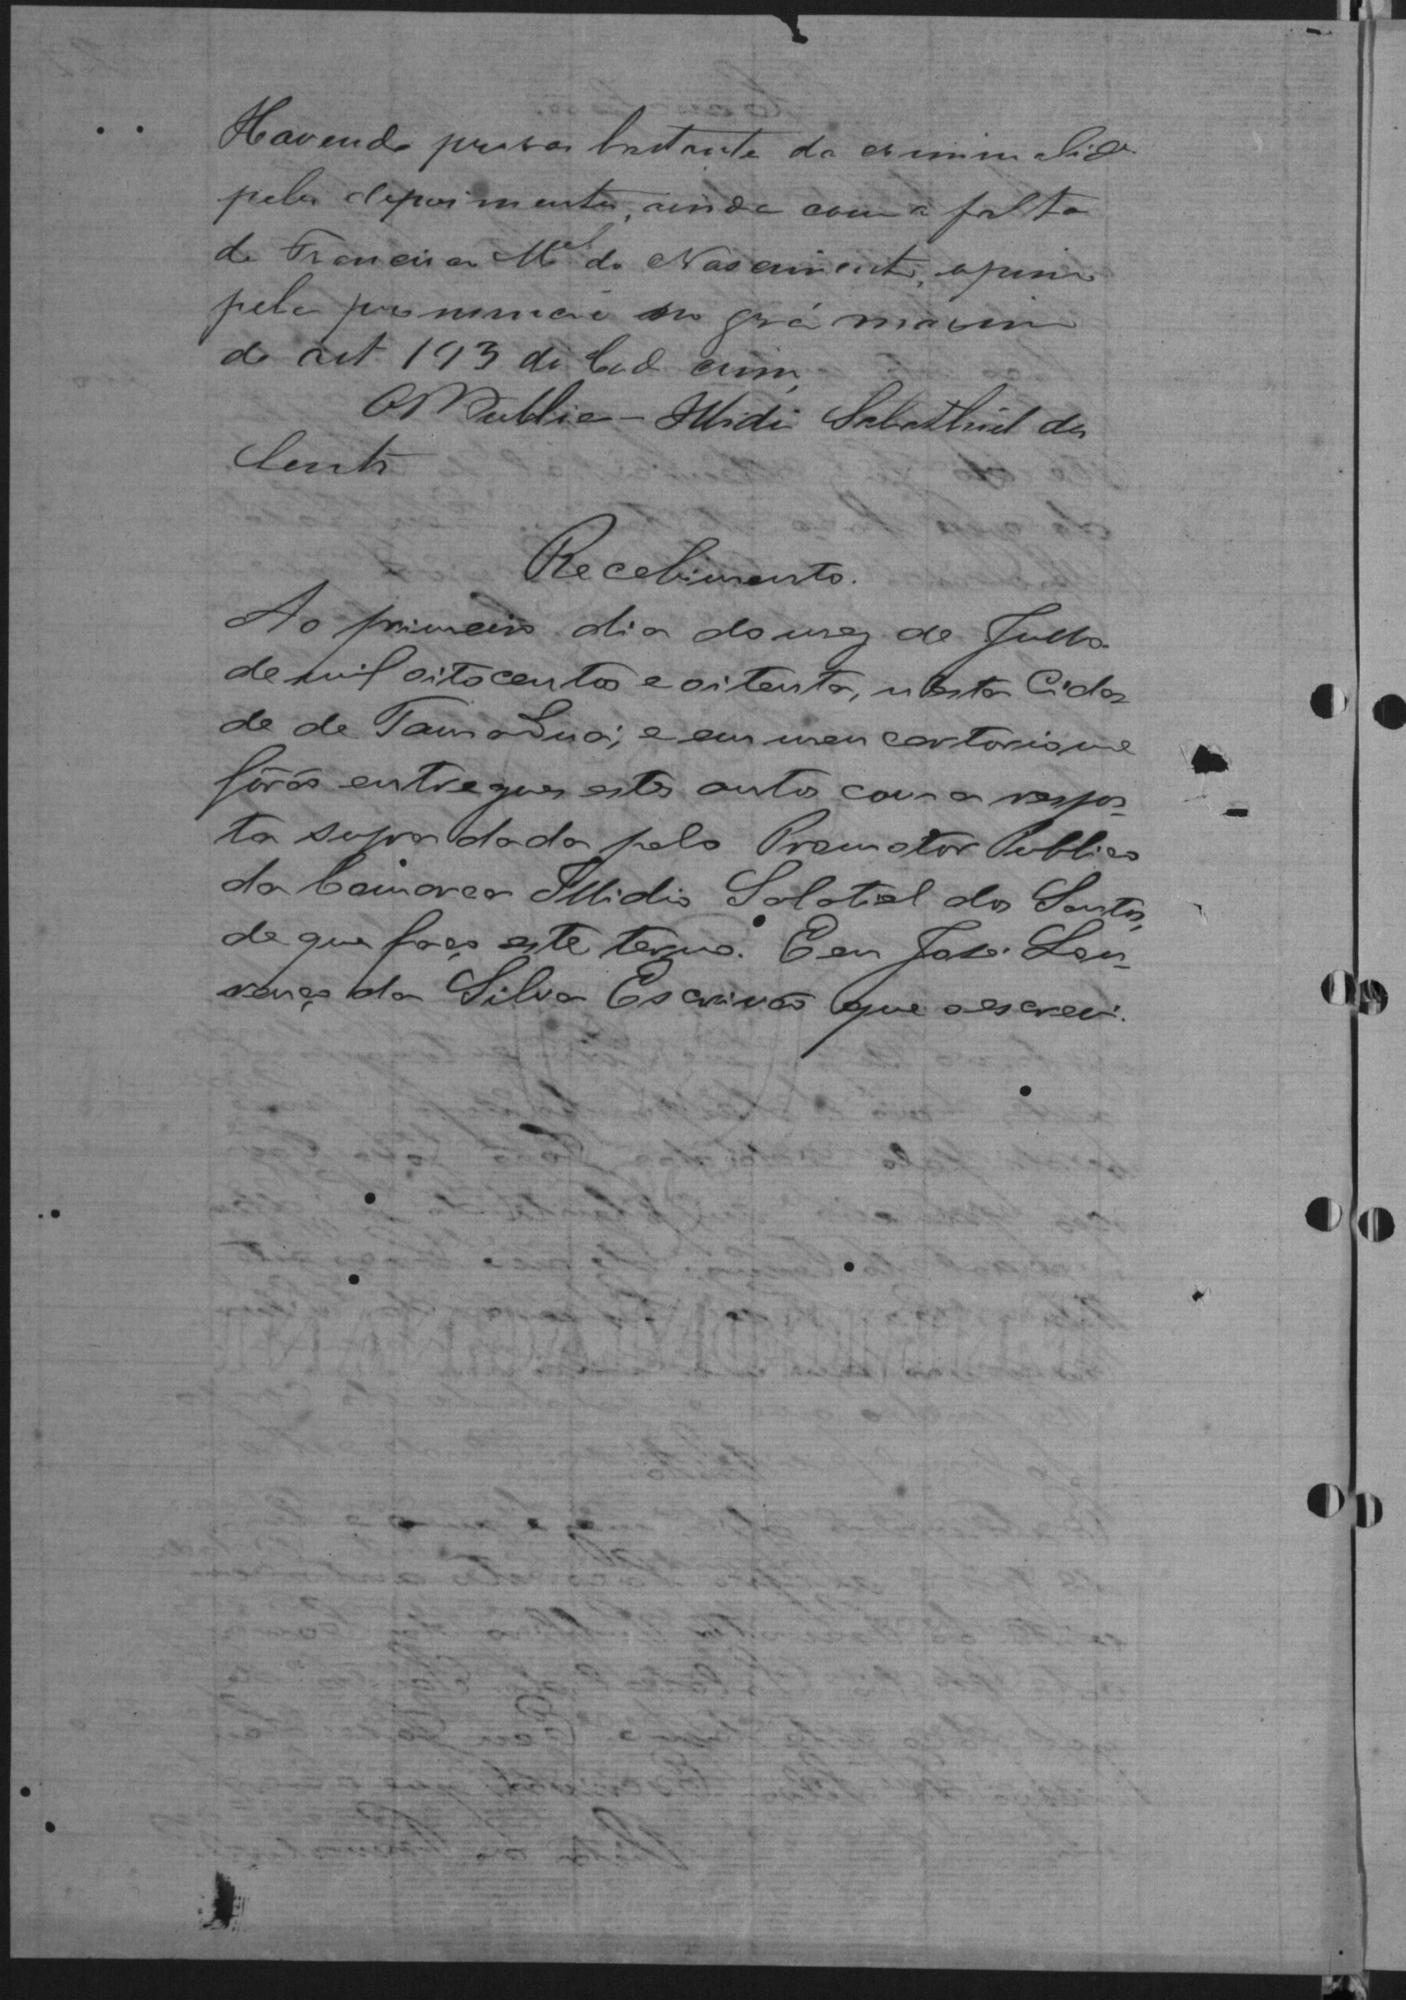 Havendo prova bastante da criminalide
pelos depoimentos, ainda com a falta
de Francisca Mel do Nascimento, opino
pela pronuncia no gráo maximo
do art 193 do Cod crim,
O P Publico - Illidio Salathiel dos
Santos
Recebimento.
Ao primeiro dia do mez de Julho
de mil oitocentos e oitenta, nesta Cida
de de; e em meu cartorio me
fôrão entregues estes autos com a respos-
ta supra dada pelo Promotor Publico
da Comarca Illidio Salatiel dos Santos,
de que faço este termo. E eu José Lou-
renço da Silva Escrivão que o escrevi.